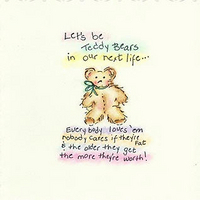 Let's be
Teddy Bears
in our next life...
Everybody loves 'em
nobody cares if they're Fat
& the older they get
the more they're worth!